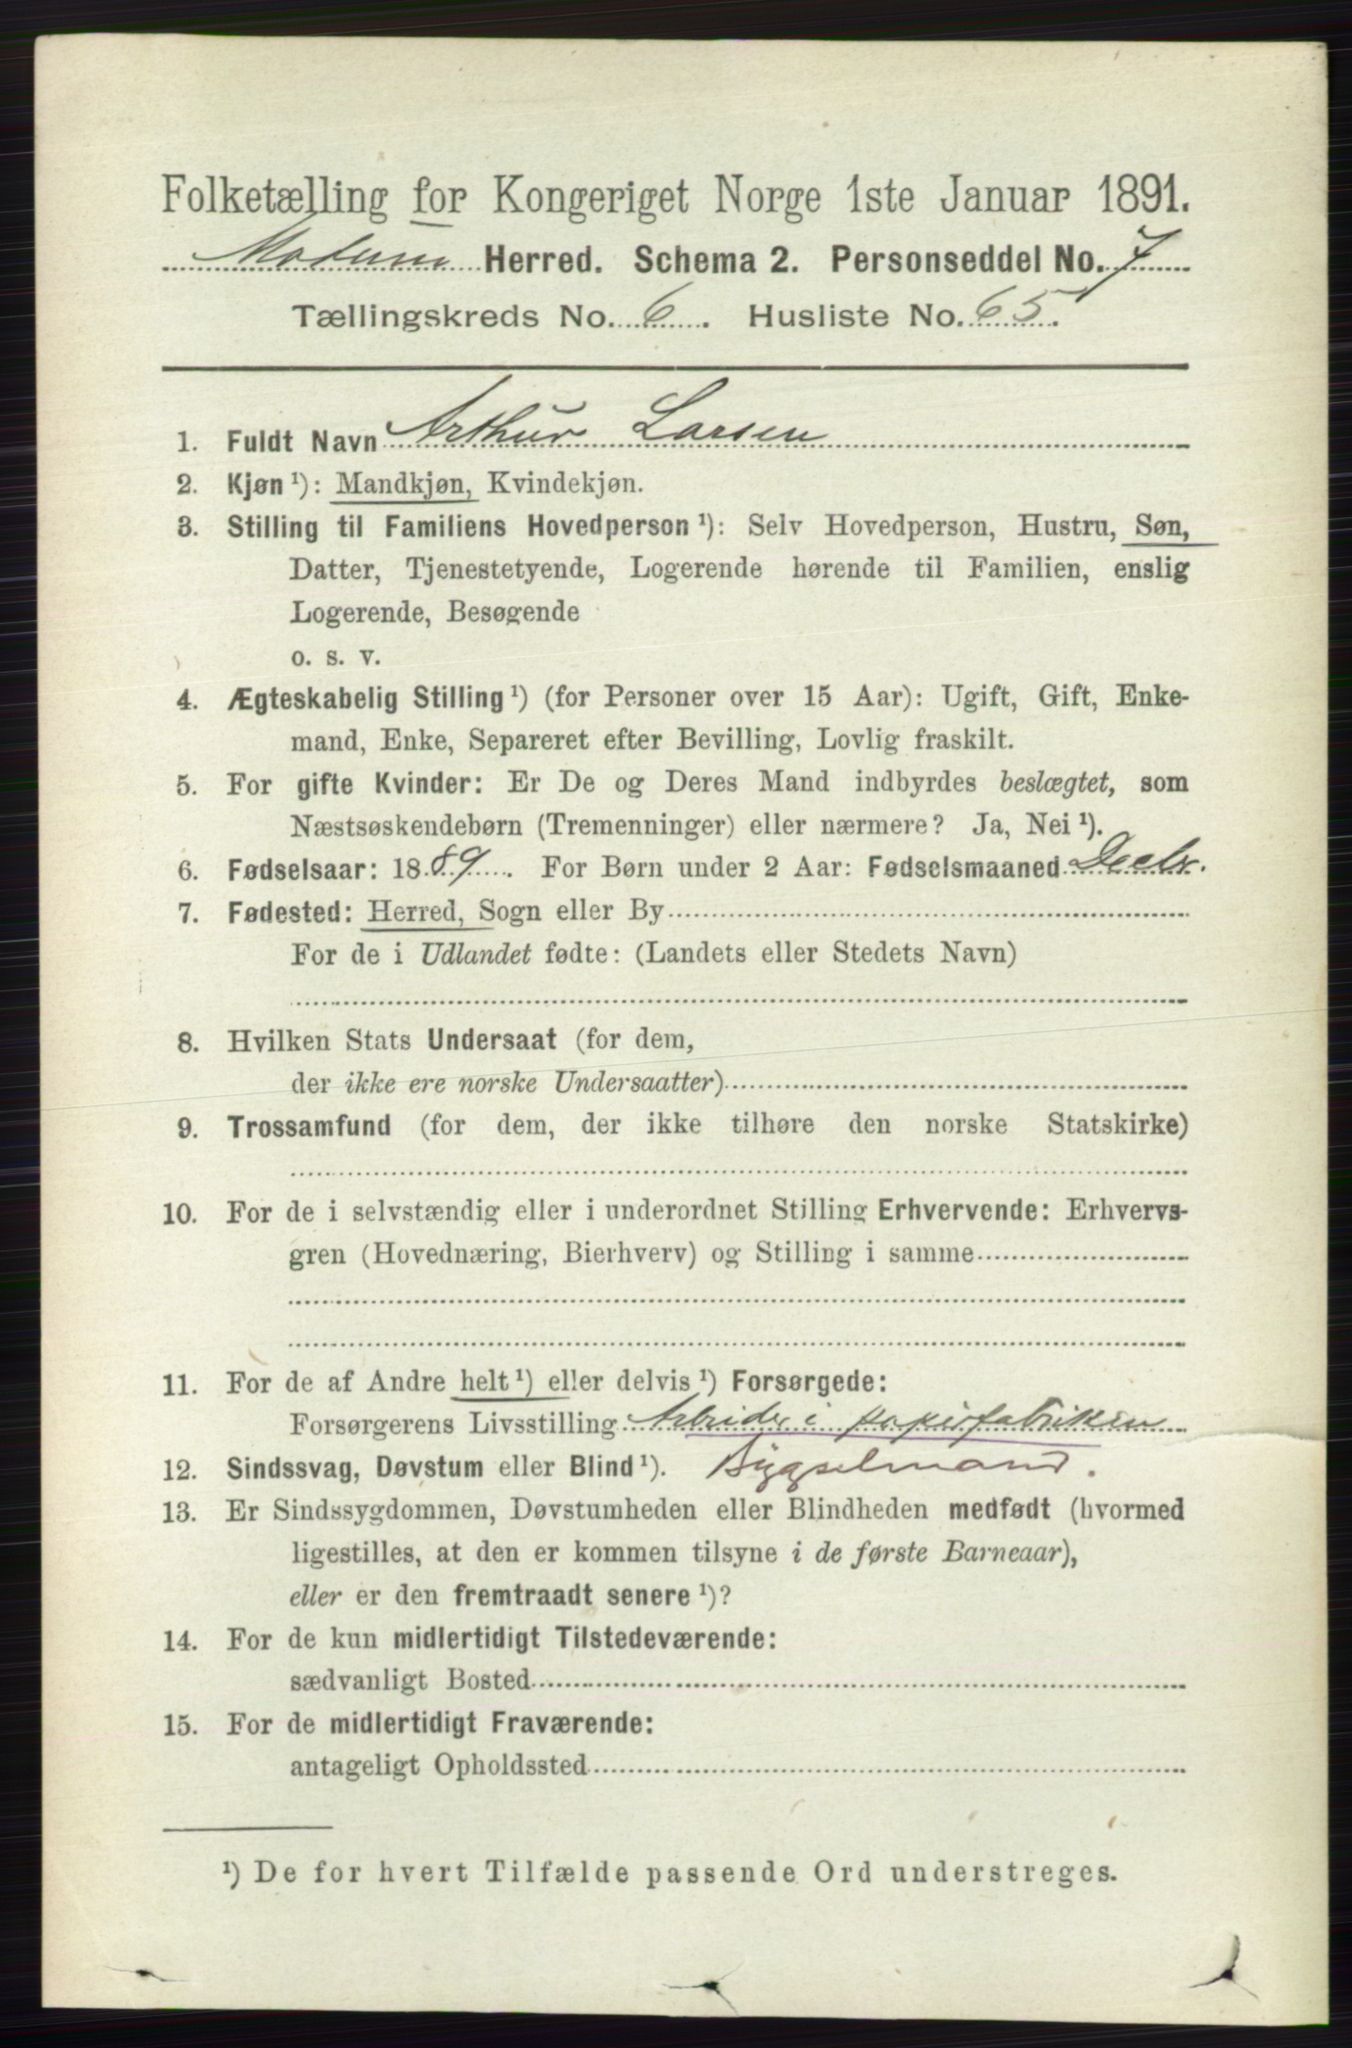 Folketælling for Kongeriget Norge 1ste Januar 1891.
Modum Herred. Schema 2. Personseddel No. 7
Tællingskreds No. 6. Husliste No. 65.
1. Fuldt Navn Arthur Larsen
2. Kjøn ¹): Mandkjøn, Kvindekjøn.
3. Stilling til Familiens Hovedperson ¹): Selv Hovedperson, Hustru, Søn,
Datter, Tjenestetyende, Logerende hørende til Familien, enslig
Logerende, Besøgende
o. s. v.
4. Ægteskabelig Stilling ¹) (for Personer over 15 Aar): Ugift, Gift, Enke-
mand, Enke, Separeret efter Bevilling, Lovlig fraskilt.
5. For gifte Kvinder: Er De og Deres Mand indbyrdes beslægtet, som
Næstsøskendebørn (Tremenninger) eller nærmere? Ja, Nei ¹).
6. Fødselsaar: 1889. For Børn under 2 Aar: Fødselsmaaned Decbr.
7. Fødested: Herred, Sogn eller By
For de i Udlandet fødte: (Landets eller Stedets Navn)
8. Hvilken Stats Undersaat (for dem,
der ikke ere norske Undersaatter)
9. Trossamfund (for dem, der ikke tilhøre den norske Statskirke)
10. For de i selvstændig eller i underordnet Stilling Erhvervende: Erhvervs-
gren (Hovednæring, Bierhverv) og Stilling i samme
11. For de af Andre helt ¹) eller delvis ¹) Forsørgede:
Forsørgerens Livsstilling Arbeider i papirfabriken
12. Sindssvag, Døvstum eller Blind ¹). Bygselmand.
13. Er Sindssygdommen, Døvstumheden eller Blindheden medfødt (hvormed
ligestilles, at den er kommen tilsyne i de første Barneaar),
eller er den fremtraadt senere ¹)?
14. For de kun midlertidigt Tilstedeværende:
sædvanligt Bosted
15. For de midlertidigt Fraværende:
antageligt Opholdssted
¹) De for hvert Tilfælde passende Ord understreges.